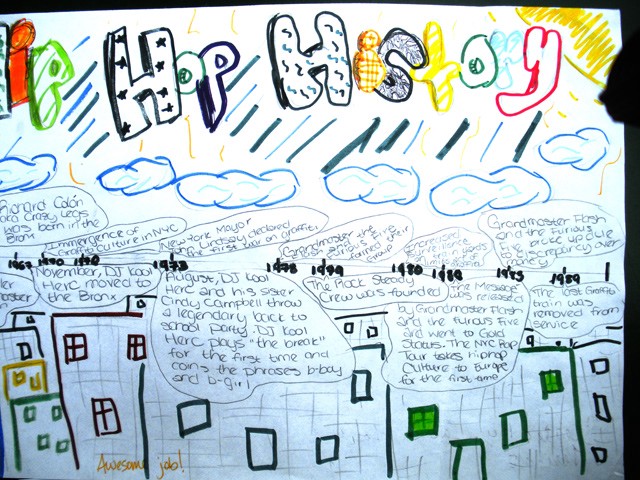 Hip Hop History
Richard Colón
aka Crazy Legs
was born in the
Bronx
Immergence of
Graffiti Culture in NYC
New York Mayor
Lindsay declared
the first war on graffiti
Grandmaster
Furious
formed their
Group
Grandmaster Flash
and the Furious
Five broke up due
to discrepancy over
money
1970
1973
1978
1979
1980
1982
1983
1989
November, DJ Kool
Herc moved to
the Bronx
August, DJ Kool
Herc and his sister
Cindy Campbell throw
a legendary back to
school party. DJ Kool
Herc plays "the break"
for the first time and
coins the phrases b-boy
and b-girl
The Rock Steady
Crew was founded
The Message
was released
by Grandmaster Flash
and the Furious Five
and went to Gold
Status. The NYC Rap
Tour takes hiphop
Culture to Europe
for the first time
The last Graffiti
train was
removed from
service
Awesome job!